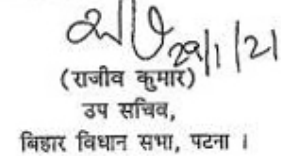 29/1/21
(राजीव कुमार)
उप सचिव,
बिहार विधान सभा, पटना ।